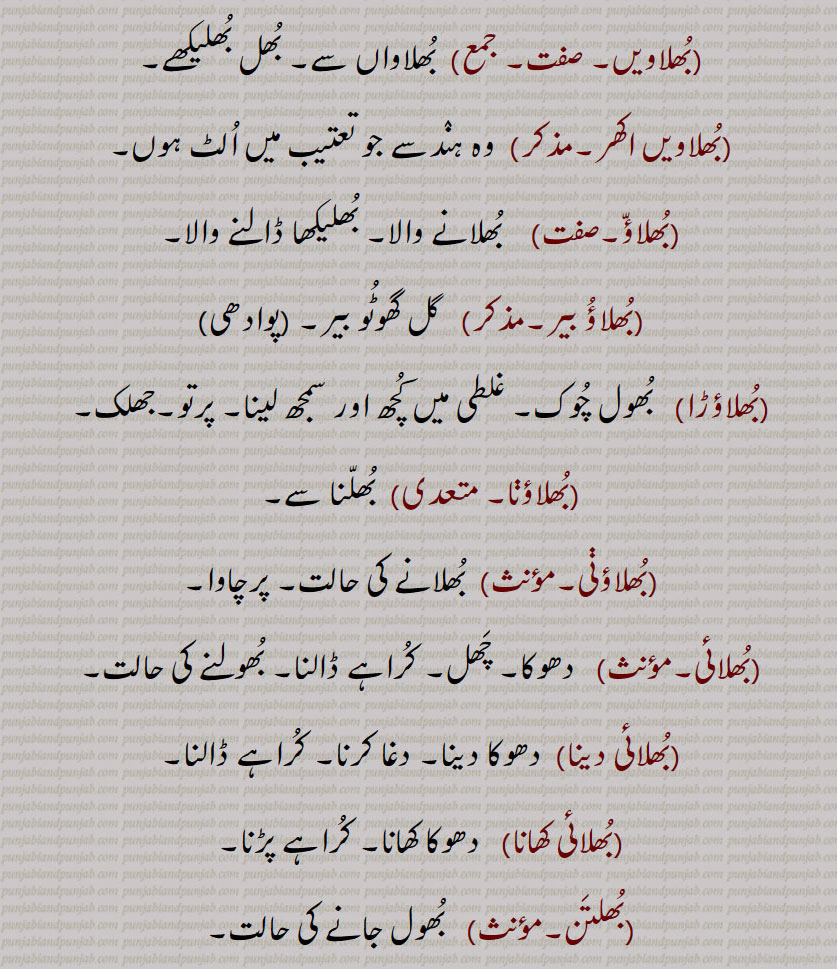 (بُھلاویں۔ صفت۔ جمع) بُھلاواں سے۔ بُھل بُھلیکھے۔
(بُھلاویں اکھر۔مذکر) وہ ہندسے جو تعتیب میں اُلٹ ہوں۔
(بُھلاؤّ۔صفت) بُھلانے والا۔ بُھلیکھا ڈالنے والا۔
(بُھلاؤُ بیر۔مذکر) گل گھوٹُو بیر۔ (پوادھی)
(بُھلاؤڑا) بُھول چُوک۔ غلطی میں کُچھ اور سمجھ لینا۔ پرتو۔جھلک۔
(بُھلاؤݨا۔ متعدی) بُھلّنا سے۔
(بُھلاؤݨی۔مؤنث) بُھلانے کی حالت۔ پرچاوا۔
(بُھلائی۔مؤنث) دھوکا۔ چَھل۔ کُراہے ڈالنا۔ بُھولنے کی حالت۔
(بُھلائی دینا) دھوکا دینا۔ دغا کرنا۔ کُراہے ڈالنا۔
(بُھلائی کھانا) دھوکا کھانا۔ کُراہے پڑنا۔
(بُھلتَن۔مؤنث) بُھول جانے کی حالت۔